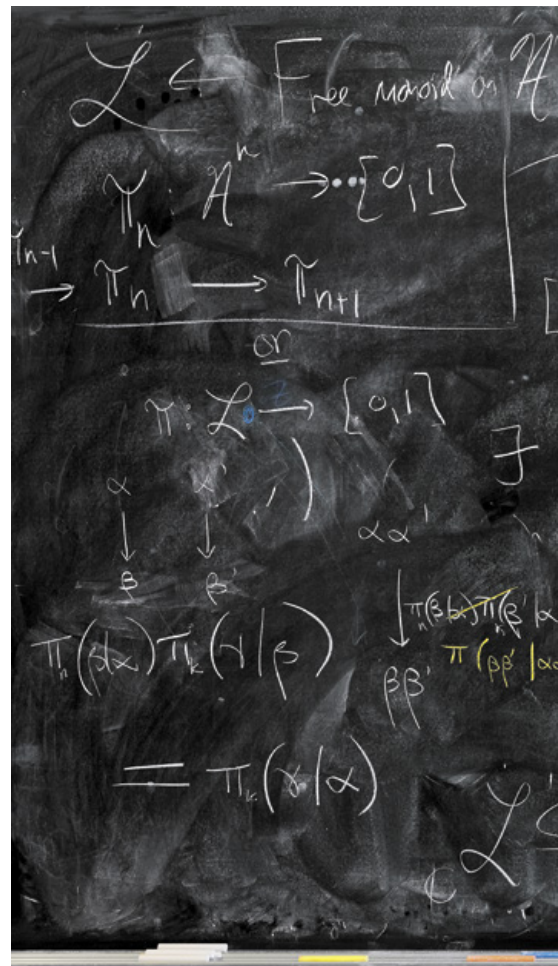 ℒ ← Free monoid on A
π_n : A^n → [0,1]
π_{n-1} → π_n → π_{n+1}
or
π : ℒ → [0,1]
α α' αα'
↓ ↓ ↓
β β' ββ'
π_n(β|α) π_n(β'|α
π(ββ'|αα
π_n(β|α) π_k(γ|β)
= π_k(γ|α)
ℒ